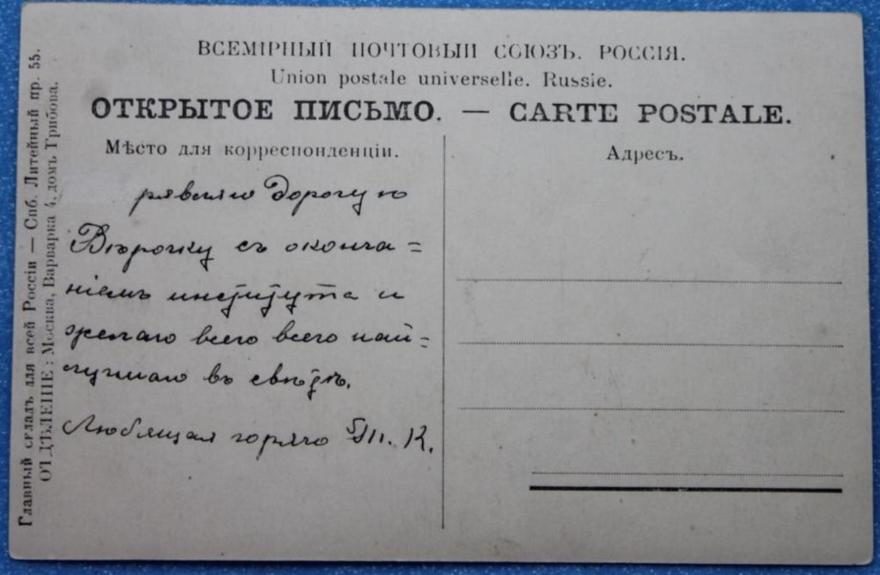 ВСЕМІРНЫЙ ПОЧТОВЫЙ СОЮЗЪ. РОССІЯ.
Union postale universelle. Russie.
ОТКРЫТОЕ ПИСЬМО. — CARTE POSTALE.
Мѣсто для корреспонденціи.
Адресъ.
дорогую
Вѣрочку съ оконча=
ніемъ института и
желаю всего всего най=
лучшаго въ свѣтѣ.
Любящая горячо К.
Главный складъ для всей Россіи — Спб. Литейный пр. 55.
ОТДѢЛЕНІЕ: Москва, Варварка 4, домъ Грибова.